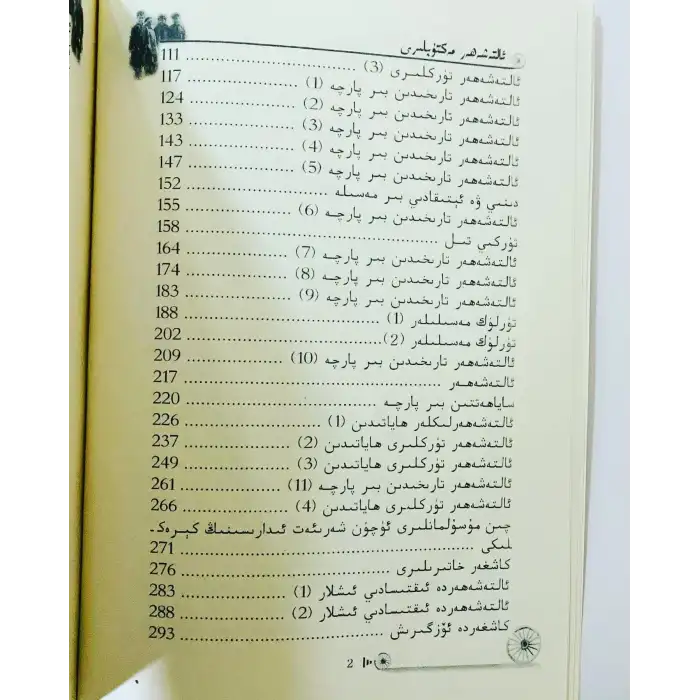 ئالتەشەھەر مەكتۇپلىرى
ئالتەشەھەر تۈركلىرى (3) ........ 111
ئالتەشەھەر تارىخىدىن بىر پارچە (1) ........ 117
ئالتەشەھەر تارىخىدىن بىر پارچە (2) ........ 124
ئالتەشەھەر تارىخىدىن بىر پارچە (3) ........ 133
ئالتەشەھەر تارىخىدىن بىر پارچە (4) ........ 143
ئالتەشەھەر تارىخىدىن بىر پارچە (5) ........ 147
دىنىي ۋە ئېتىقادىي بىر مەسىلە ........ 152
ئالتەشەھەر تارىخىدىن بىر پارچە (6) ........ 155
تۈركىي تىل ........ 158
ئالتەشەھەر تارىخىدىن بىر پارچە (7) ........ 164
ئالتەشەھەر تارىخىدىن بىر پارچە (8) ........ 174
ئالتەشەھەر تارىخىدىن بىر پارچە (9) ........ 183
تۈرلۈك مەسىلىلەر (1) ........ 188
تۈرلۈك مەسىلىلەر (2) ........ 202
ئالتەشەھەر تارىخىدىن بىر پارچە (10) ........ 209
ئالتەشەھەر ........ 217
ساياھەتتىن بىر پارچە ........ 220
ئالتەشەھەرلىكلەر ھاياتىدىن (1) ........ 226
ئالتەشەھەر تۈركلىرى ھاياتىدىن (2) ........ 237
ئالتەشەھەر تۈركلىرى ھاياتىدىن (3) ........ 249
ئالتەشەھەر تارىخىدىن بىر پارچە (11) ........ 261
ئالتەشەھەر تۈركلىرى ھاياتىدىن (4) ........ 266
چىن مۇسۇلمانلىرى ئۈچۈن شەرىئەت ئىدارىسىنىڭ كېرەك-
لىكى ........ 271
كاشغەر خاتىرىلىرى ........ 276
ئالتەشەھەردە ئىقتىسادىي ئىشلار (1) ........ 283
ئالتەشەھەردە ئىقتىسادىي ئىشلار (2) ........ 288
كاشغەردە ئۆزگىرىش ........ 293
2